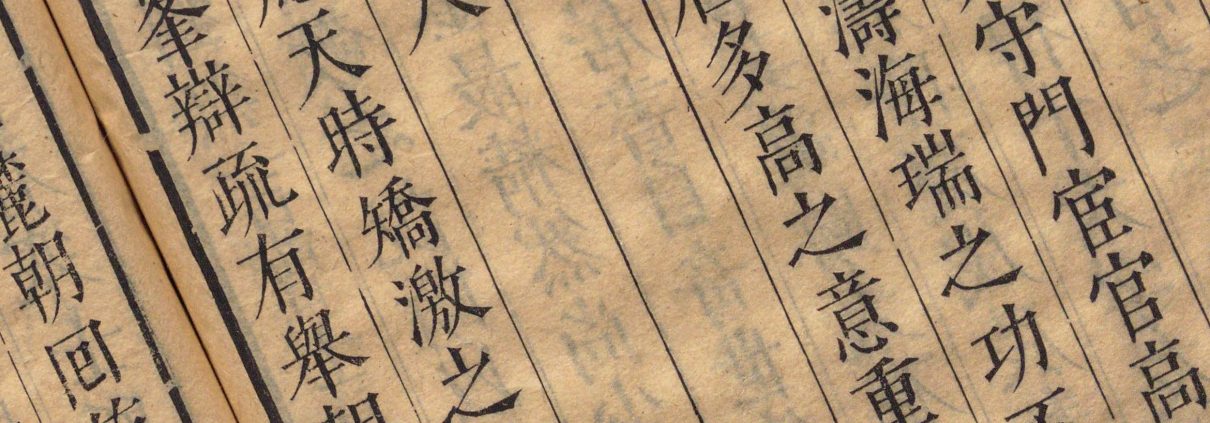 守門宦官高
濤海瑞之功
多高之意重
天時矯激之
峯辯疏有舉
朝回